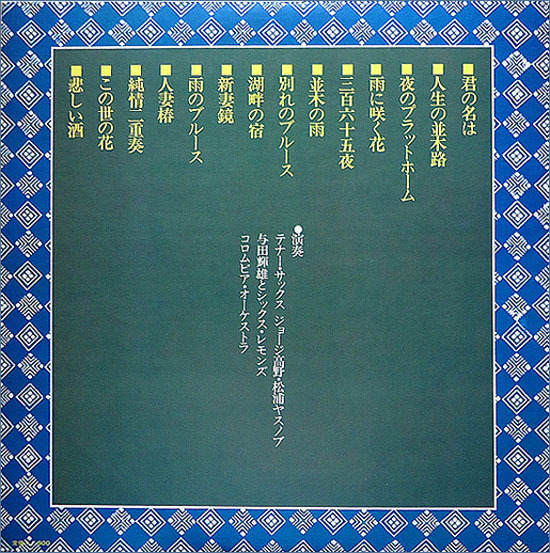 ■君の名は
■人生の並木路
■夜のプラットホーム
■雨に咲く花
■三百六十五夜
■並木の雨
■別れのブルース
■湖畔の宿
■新妻鏡
■雨のブルース
■人妻椿
■純情二重奏
■この世の花
■悲しい酒
●演奏
テナー・サックス ジョージ高野・松浦ヤスノブ
与田輝雄とシックス・レモンズ
コロムビア・オーケストラ